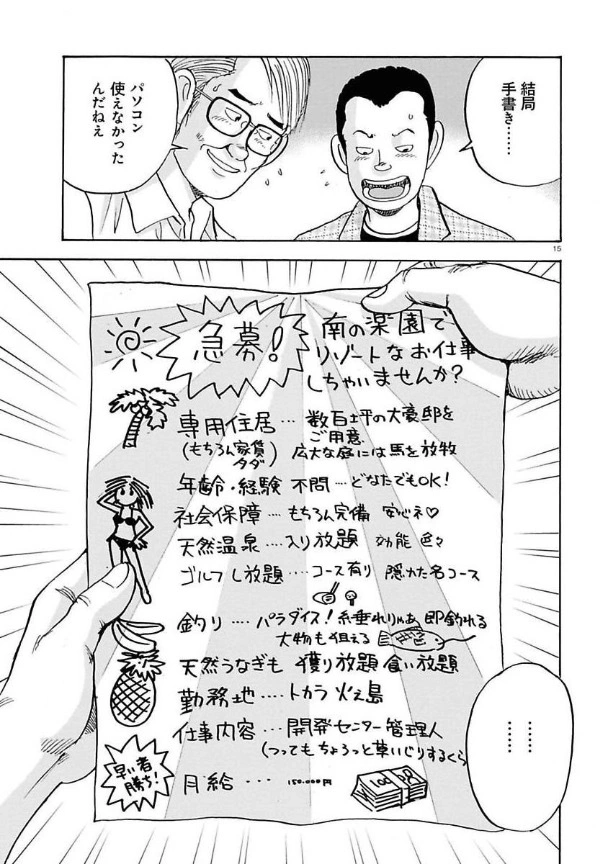 結局
手書き……
パソコン
使えなかった
んだねえ
15
急募!
南の楽園で
リゾートなお仕事
しちゃいませんか?
専用住居… 数百坪の大豪邸を
ご用意
(もちろん家賃
タダ)
広大な庭には馬を放牧
年齢・経験 不問…どなたでもOK!
社会保障…もちろん完備 安心ネ♡
天然温泉…入り放題 効能 色々
ゴルフし放題…コース有り 隠れた名コース
釣り…パラダイス!糸垂れりゃあ即釣れる
大物も狙える
天然うなぎも 獲り放題 食い放題
勤務地…トカラ 火え島
仕事内容…開発センター管理人
(つってもちょろっと草いじりするくらい
早い者
勝ち!
月給… 150.000円
100
……
……